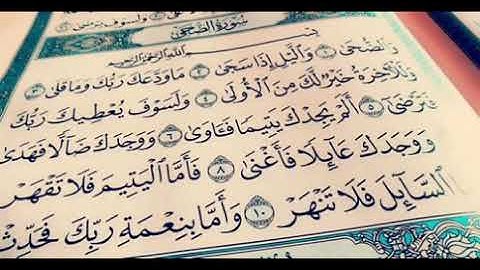 سُورَةُ الضُّحَىٰ
بِسْمِ اللَّهِ الرَّحْمَٰنِ الرَّحِيمِ
وَالضُّحَىٰ ١ وَالَّيْلِ إِذَا سَجَىٰ ٢ مَا وَدَّعَكَ رَبُّكَ وَمَا قَلَىٰ ٣
وَلَلْآخِرَةُ خَيْرٌ لَّكَ مِنَ الْأُولَىٰ ٤ وَلَسَوْفَ يُعْطِيكَ رَبُّكَ
فَتَرْضَىٰ ٥ أَلَمْ يَجِدْكَ يَتِيمًا فَـَٔاوَىٰ ٦ وَوَجَدَكَ ضَآلًّا فَهَدَىٰ
وَوَجَدَكَ عَآئِلًا فَأَغْنَىٰ ٨ فَأَمَّا الْيَتِيمَ فَلَا تَقْهَرْ
السَّآئِلَ فَلَا تَنْهَرْ ١٠ وَأَمَّا بِنِعْمَةِ رَبِّكَ فَحَدِّثْ